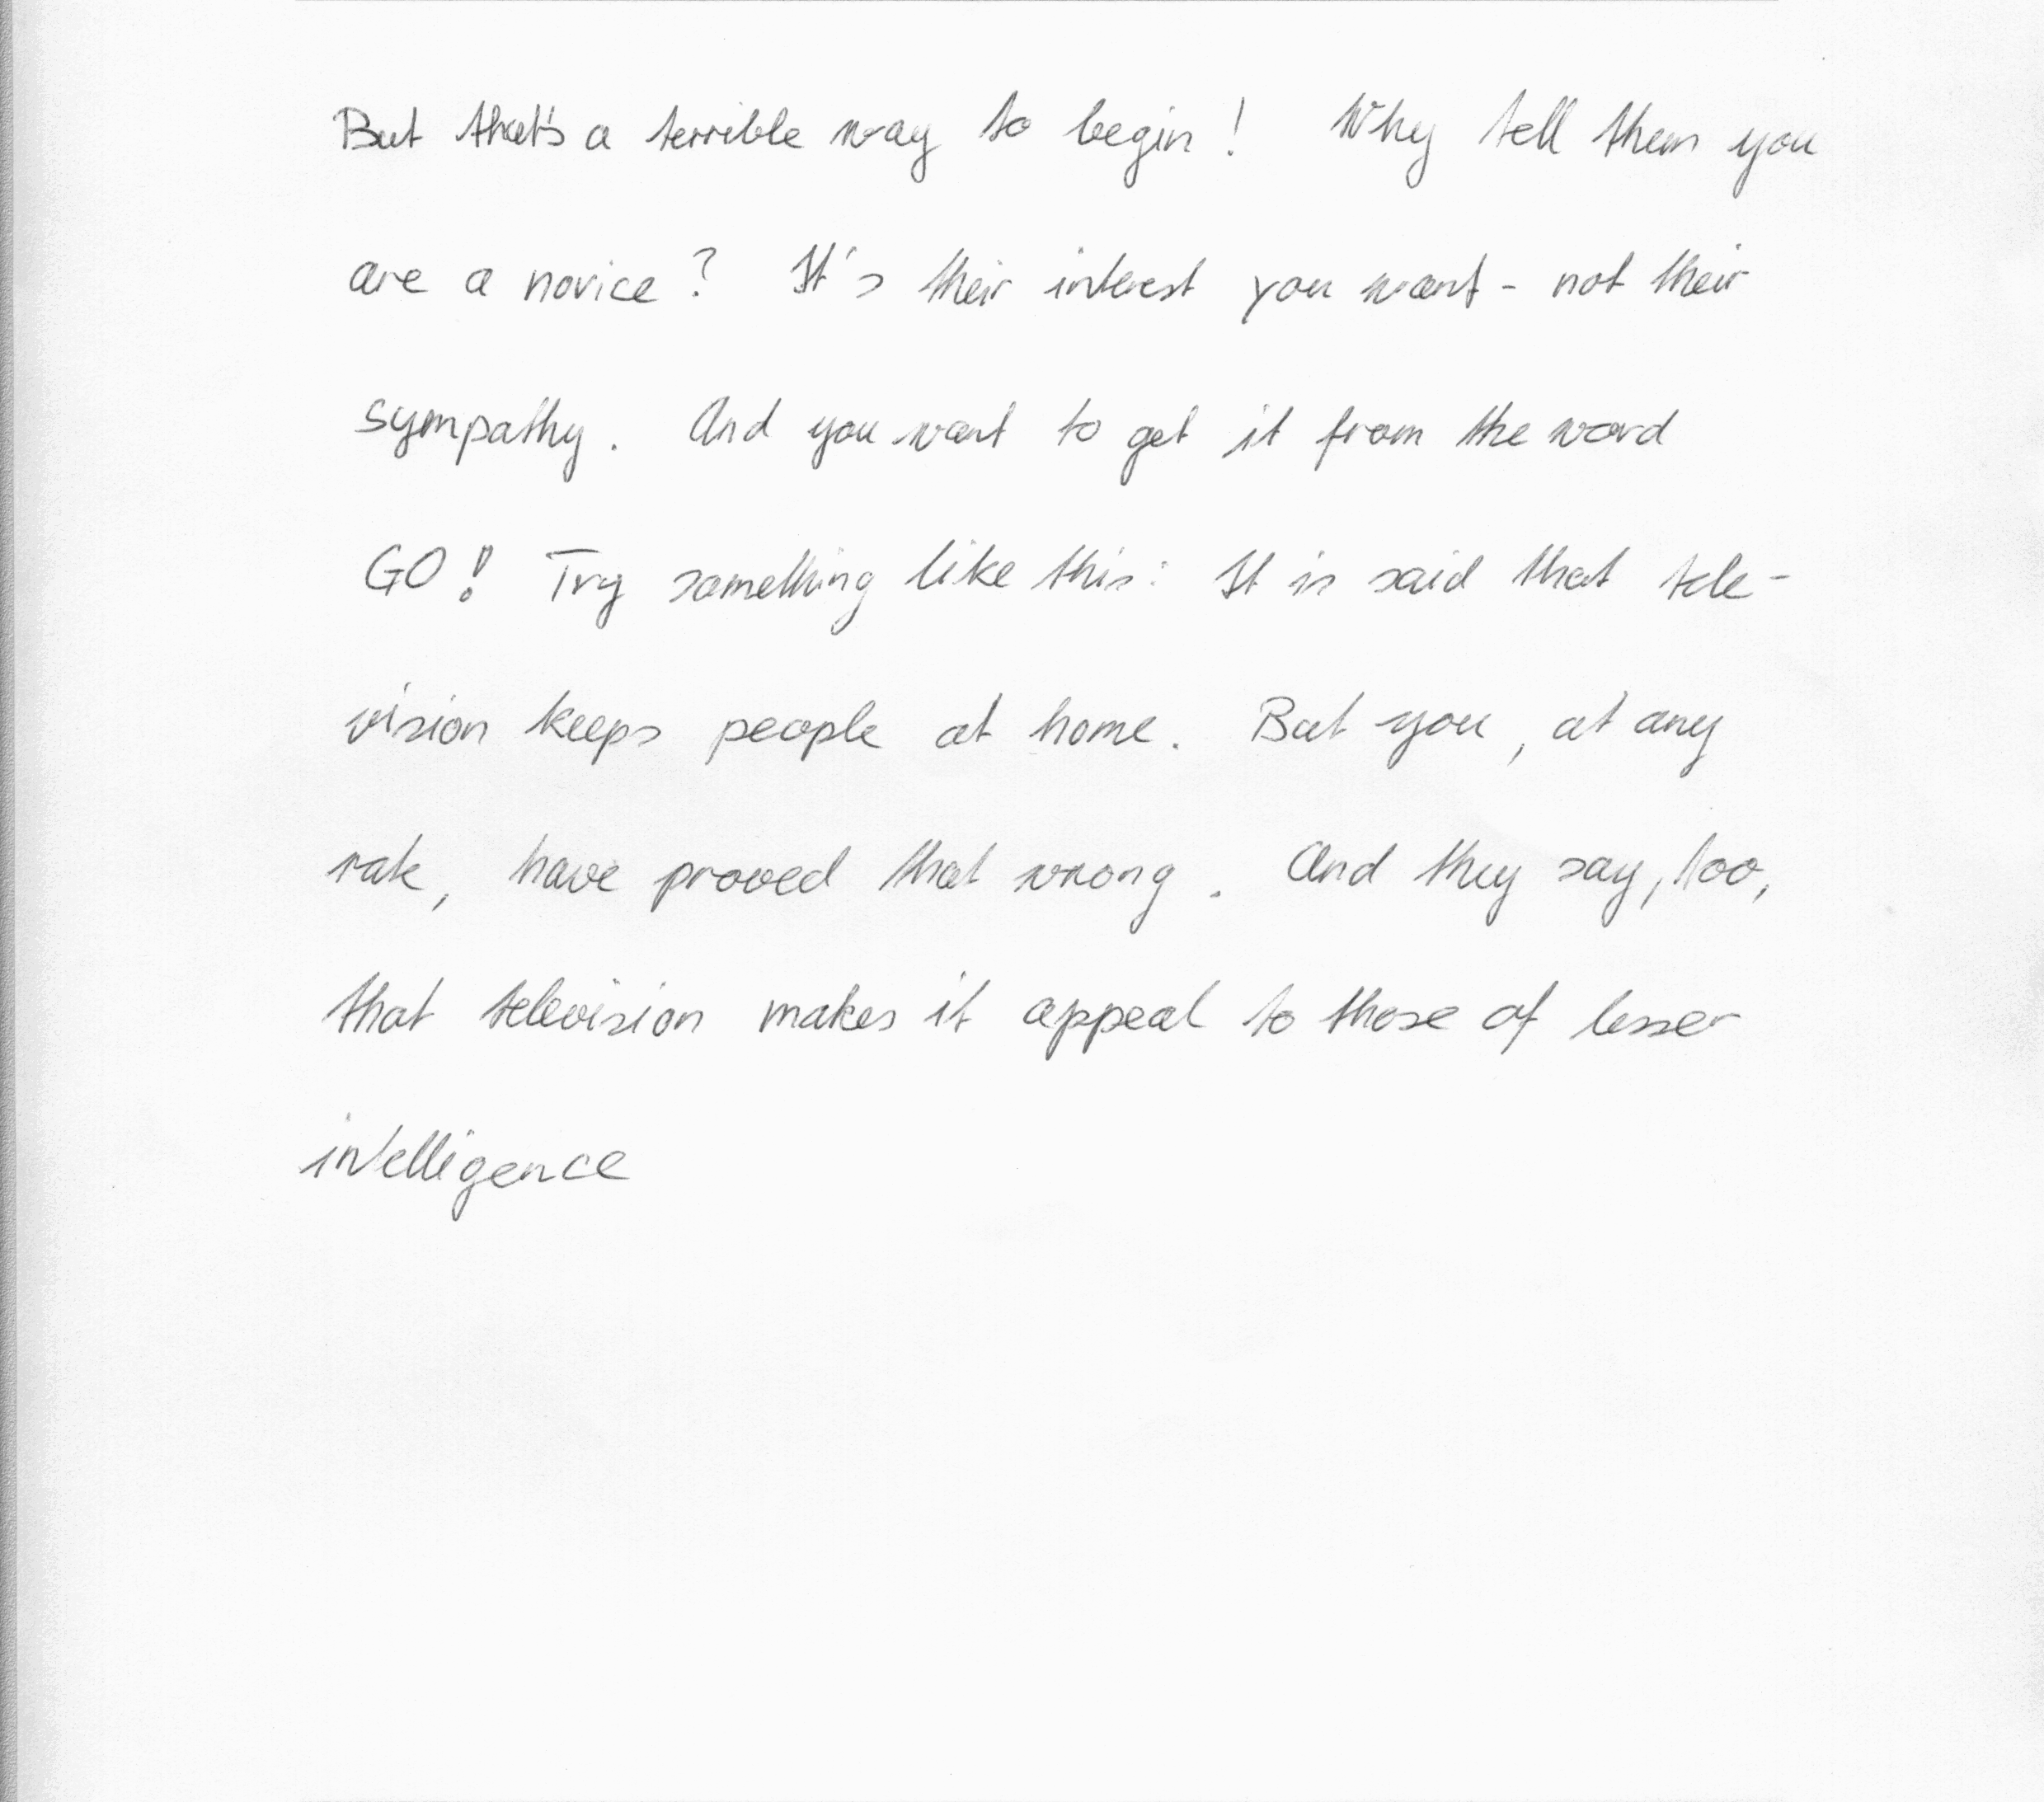 But that's a terrible way to begin! Why tell them you
are a novice? It's their interest you want - not their
sympathy. And you want to get it from the word
GO! Try something like this: It is said that tele-
vision keeps people at home. But you, at any
rate, have proved that wrong. And they say, too,
that television makes it appeal to those of lesser
intelligence